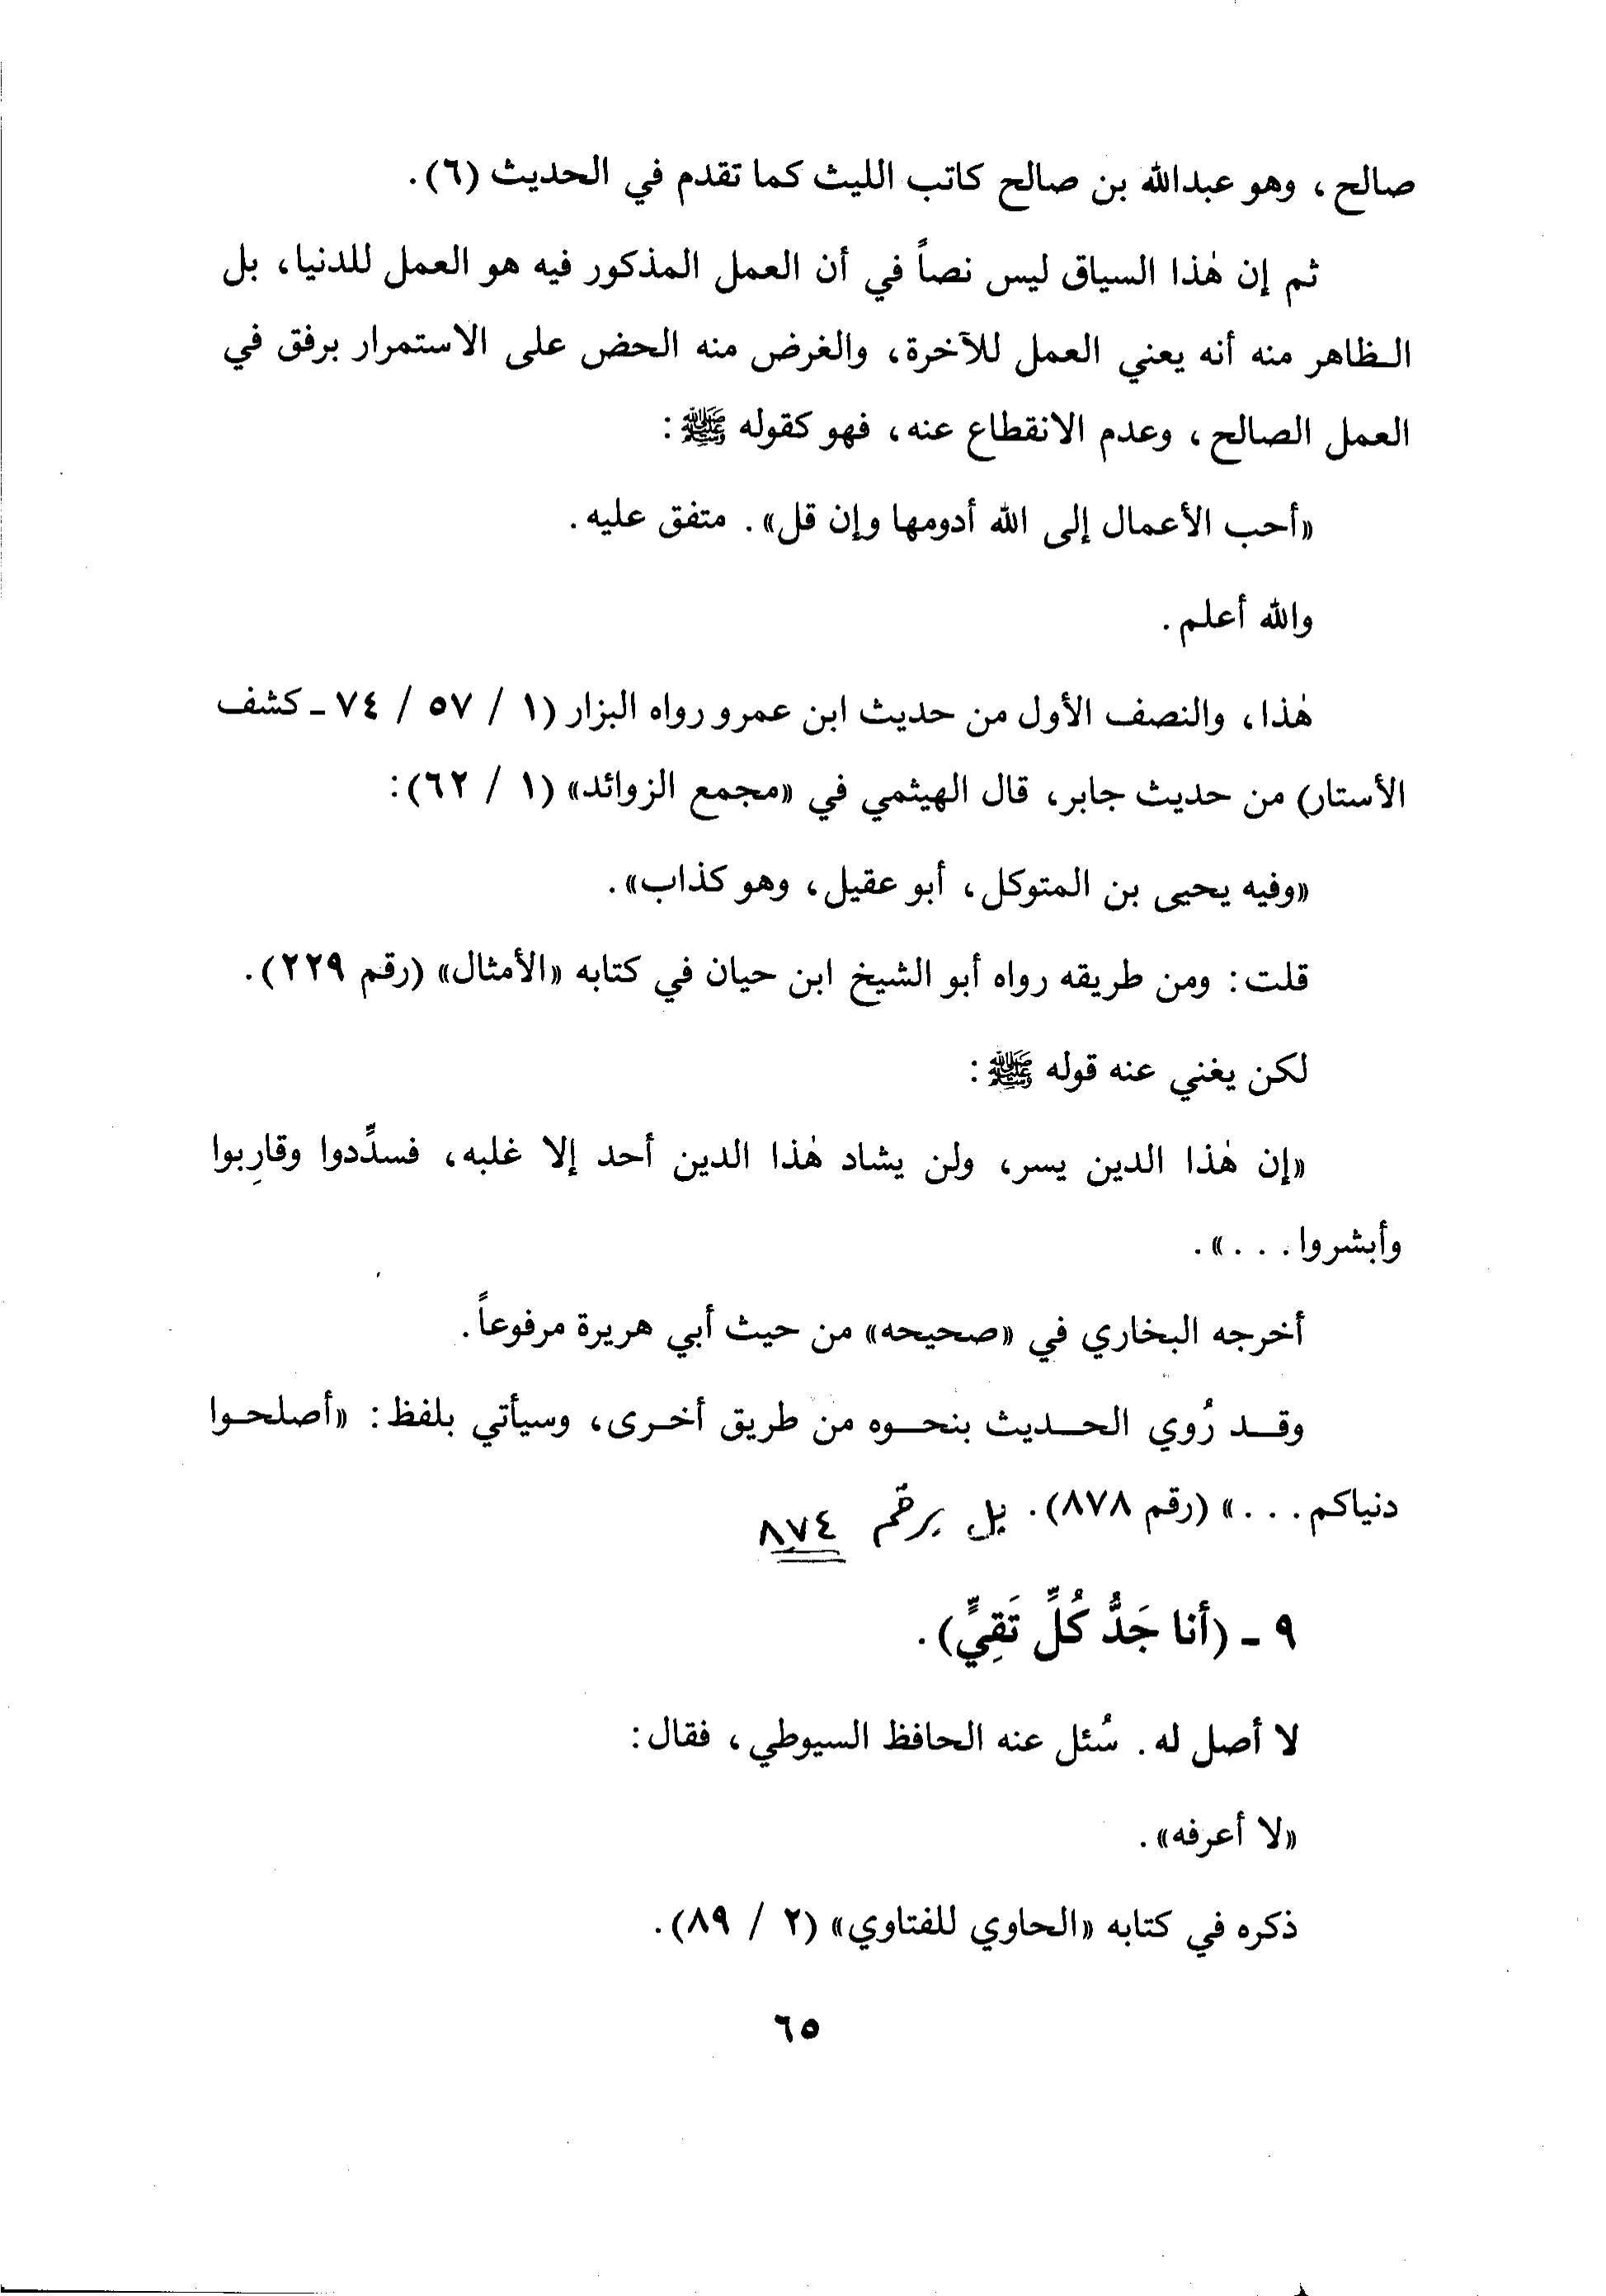 صالح، وهو عبدالله بن صالح كاتب الليث كما تقدم في الحديث (٦).
ثم إن هٰذا السياق ليس نصاً في أن العمل المذكور فيه هو العمل للدنيا، بل
الـظاهر منه أنه يعني العمل للآخرة، والغرض منه الحض على الاستمرار برفق في
العمل الصالح، وعدم الانقطاع عنه، فهو كقوله ﷺ:
«أحب الأعمال إلى الله أدومها وإن قل». متفق عليه.
والله أعلم.
هٰذا، والنصف الأول من حديث ابن عمرو رواه البزار (١ / ٥٧ / ٧٤ ـ كشف
الأستار) من حديث جابر، قال الهيثمي في «مجمع الزوائد» (١ / ٦٢):
«وفيه يحيى بن المتوكل، أبو عقيل، وهو كذاب».
قلت: ومن طريقه رواه أبو الشيخ ابن حيان في كتابه «الأمثال» (رقم ٢٢٩).
لكن يغني عنه قوله ﷺ:
«إن هٰذا الدين يسر، ولن يشاد هٰذا الدين أحد إلا غلبه، فسدِّدوا وقارِبوا
وأبشروا...».
أخرجه البخاري في «صحيحه» من حيث أبي هريرة مرفوعاً.
وقـــد رُوي الحـــديث بنحـــوه من طريق أخـرى، وسيأتي بلفظ: «أصلحـوا
دنياكم...» (رقم ٨٧٨). بل برقم ٨٧٤
٩ ـ (أنا جَدُّ كُلِّ تَقِيٍّ).
لا أصل له. سُئل عنه الحافظ السيوطي، فقال:
«لا أعرفه».
ذكره في كتابه «الحاوي للفتاوي» (٢ / ٨٩).
٦٥